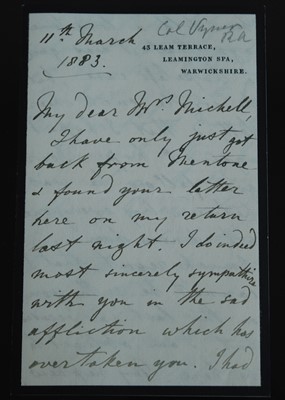 11th March
1883.
Col Vyner
RA
45 LEAM TERRACE,
LEAMINGTON SPA,
WARWICKSHIRE.
My dear Mrs Michell,
I have only just got
back from Mentone
& found your letter
here on my return
last night. I do indeed
most sincerely sympathise
with you in the sad
affliction which has
overtaken you. I had